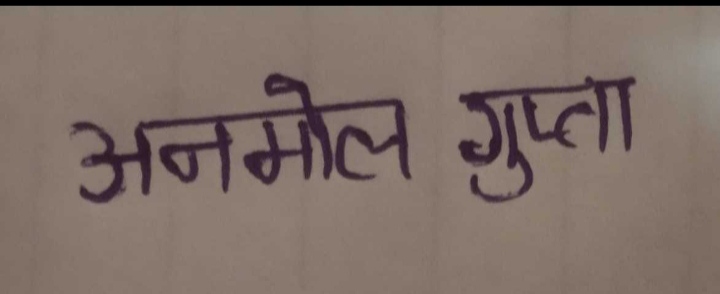 अनमोल गुप्ता